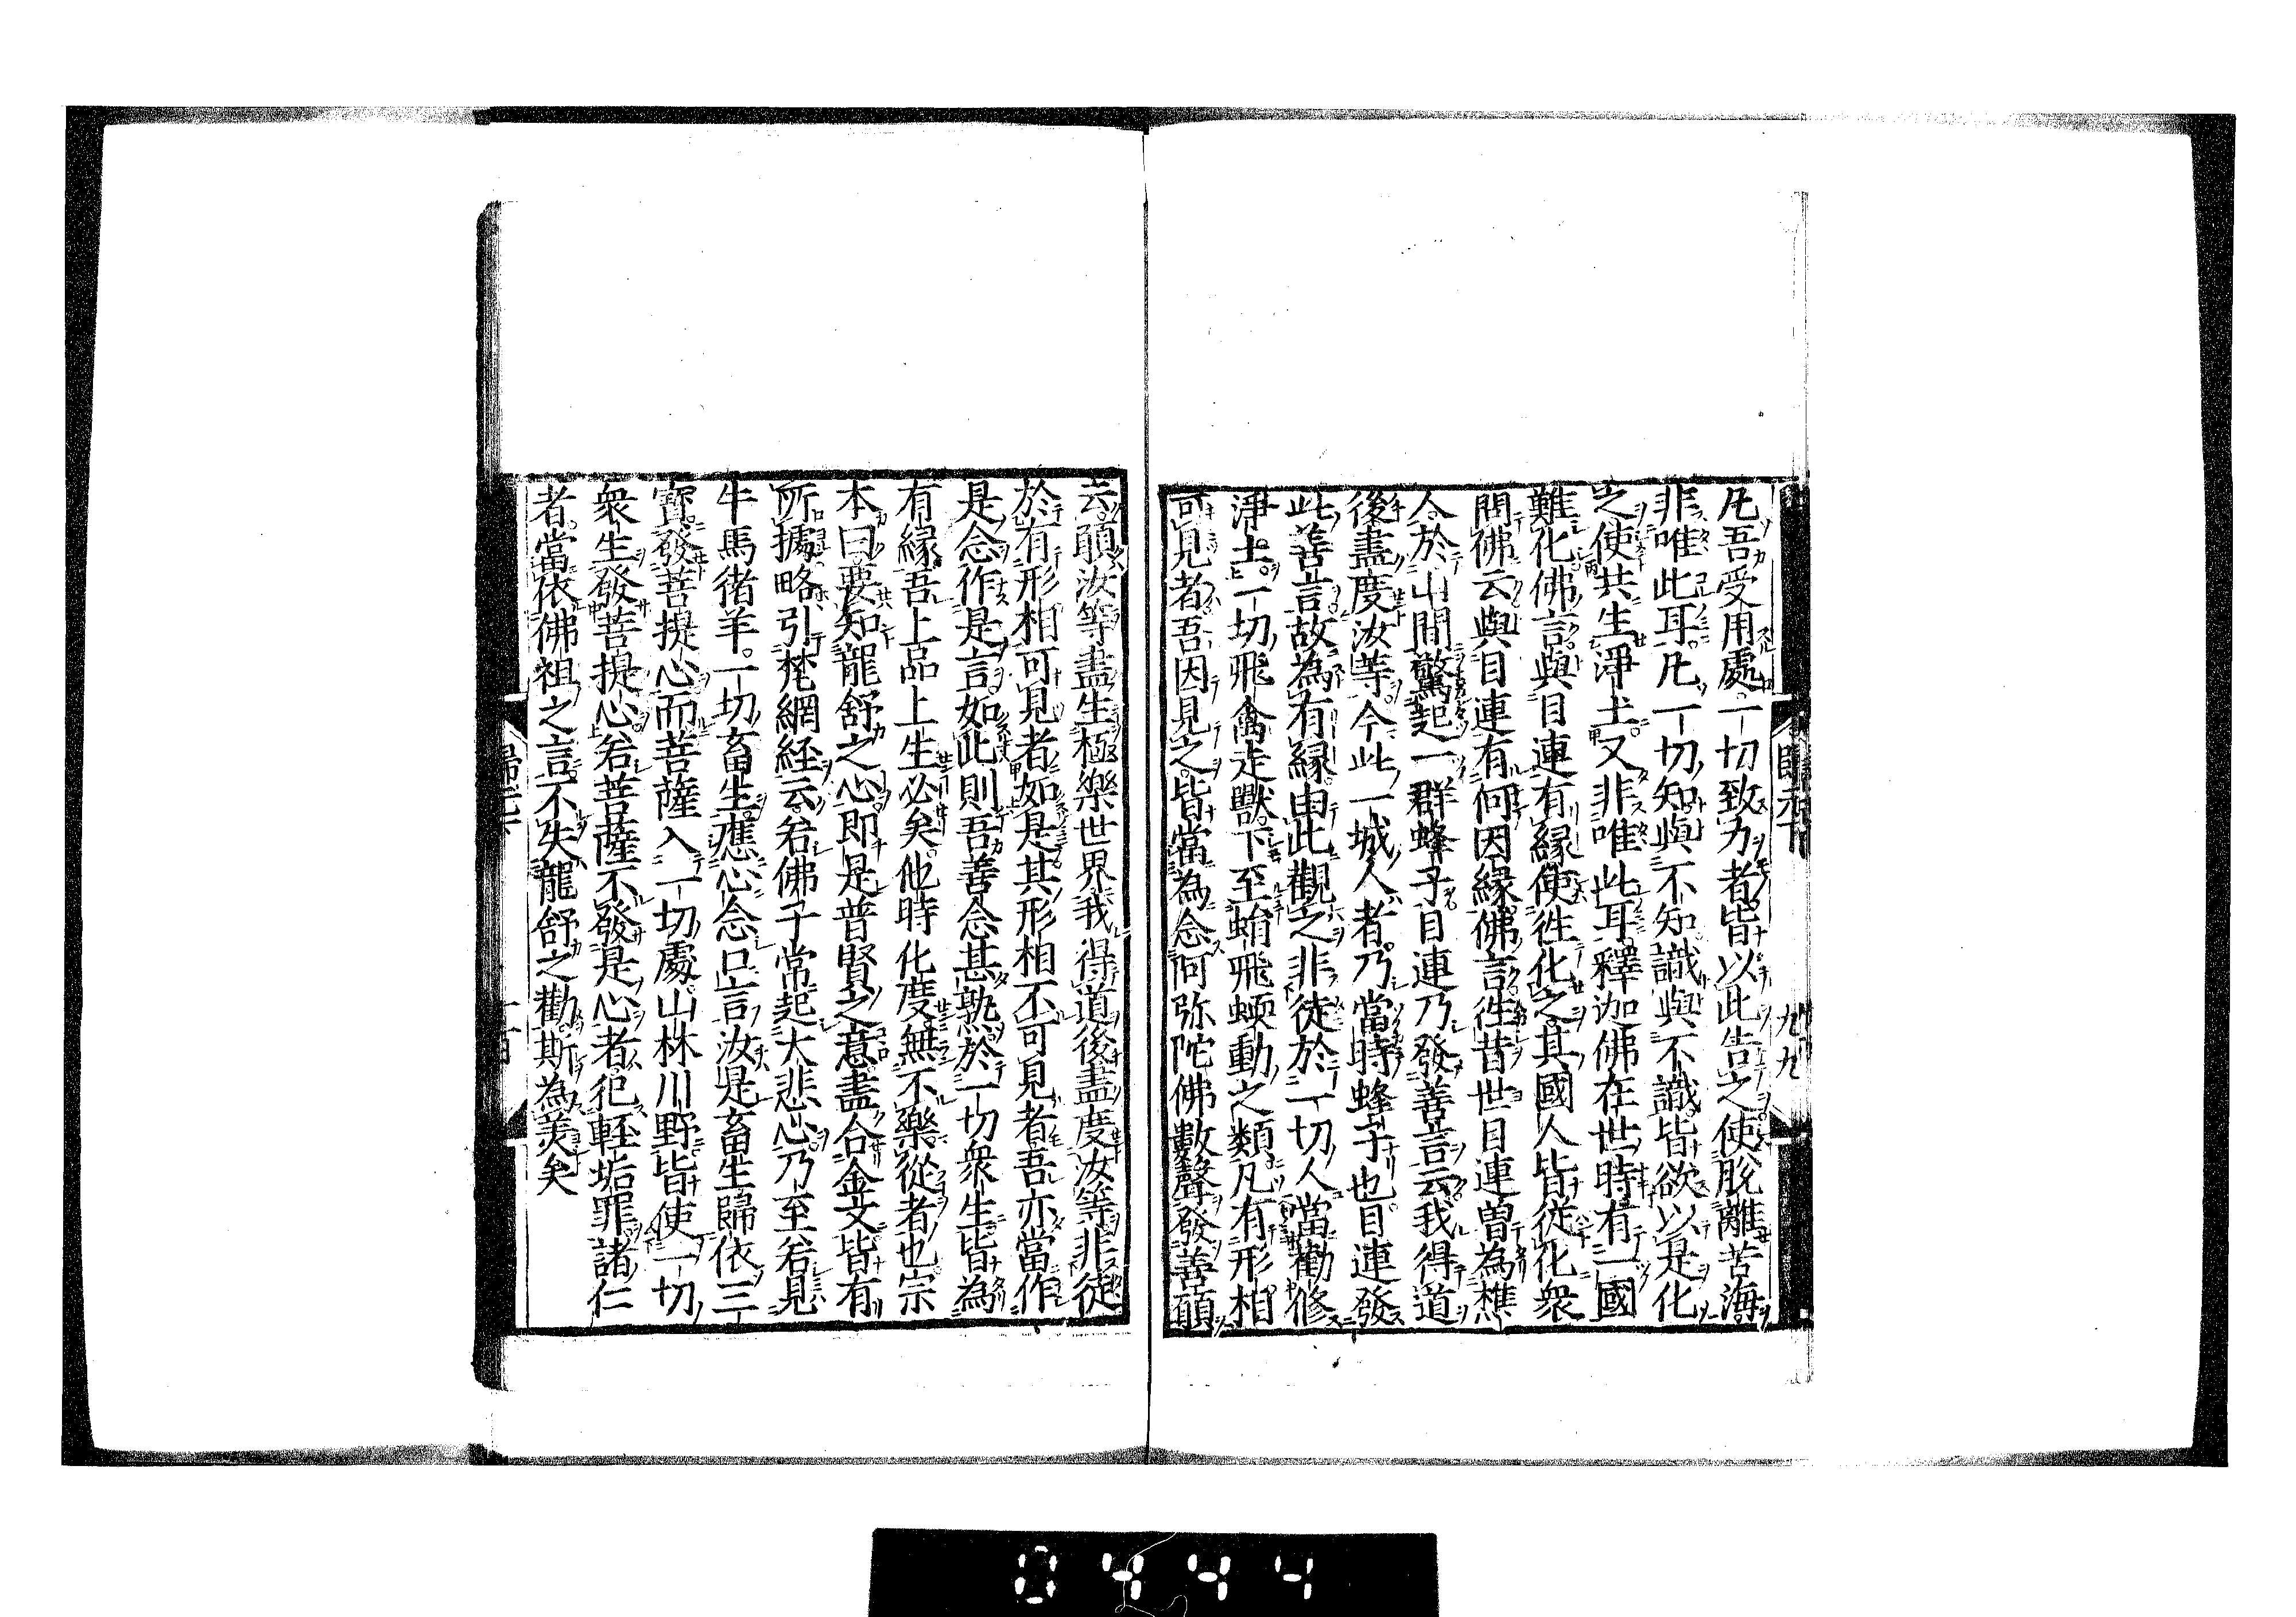 凡吾受用處一切致力者皆以此告之使脫離苦海
非唯此耳凡一切知與不知識與不識皆欲以是化
之使共生淨土又非唯此耳釋迦佛在世時有一國
難化佛言與目連有縁使徃化之其國人皆從化衆
問佛云與目連有何因縁佛言徃昔世目連曽為樵
人於山間驚起一群蜂子目連乃發善言云我得道
後盡度汝等今此一城人者乃當時蜂子也目連發
此善言故為有縁由此觀之非徒於一切人當勸修
淨土一切飛禽走獸下至蜎飛蝡動之類凡有形相
可見者吾因見之皆當為念阿弥陀佛數聲發善願
云願汝等盡生極樂世界我得道後盡度汝等非徒
於有形相可見者如是其形相不可見者吾亦當作
是念作是言如此則吾善念甚熟於一切衆生皆為
有縁吾上品上生必矣他時化度無不樂從者也宗
本曰要知龍舒之心即是普賢之意盡合金文皆有
所據略引梵網経云若佛子常起大悲心乃至若見
牛馬猪羊一切畜生應心念口言汝是畜生歸依三
寳發菩提心而菩薩入一切處山林川野皆使一切
衆生發菩提心若菩薩不發是心者犯輕垢罪諸仁
者當依佛祖之言不失龍舒之勸斯為美矣
歸元下
九九
0444